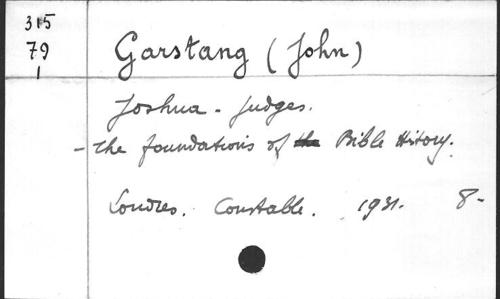 315
79
1
Garstang (John)
Joshua - Judges.
- The foundations of the Bible History.
Londres. Constable. 1931. 8-